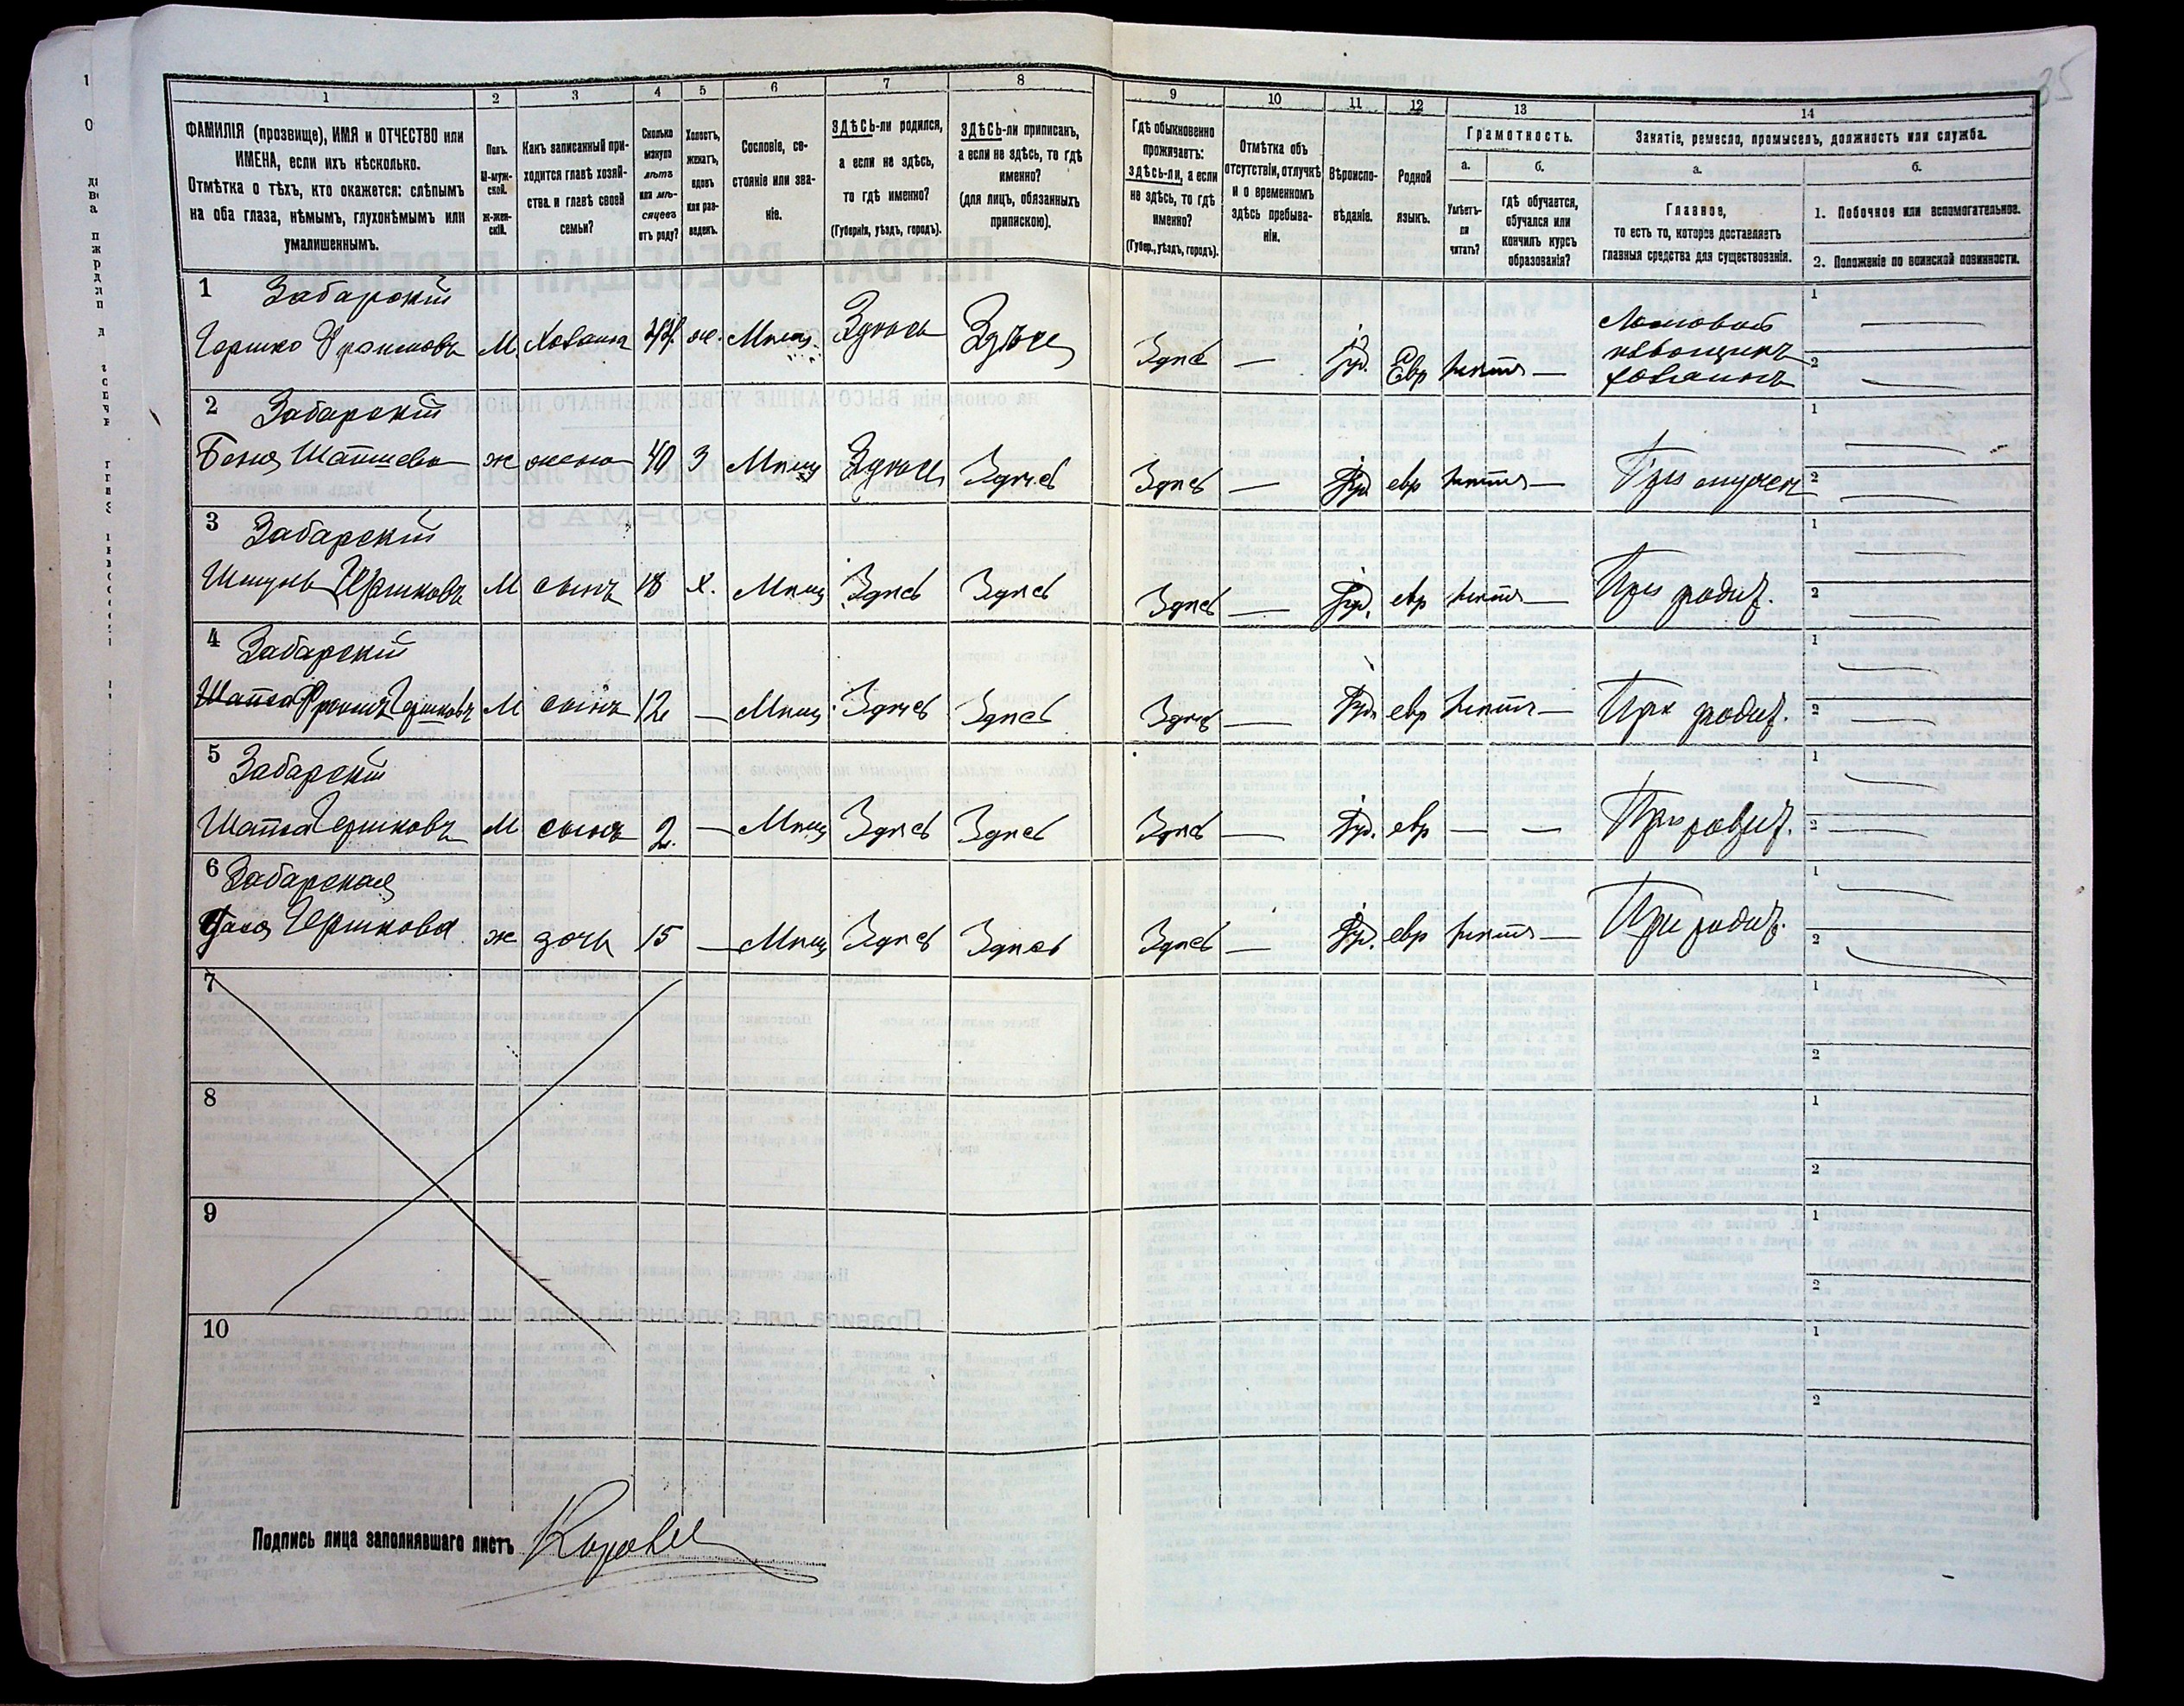 35
1 2 3 4 5 6 7 8 9 10 11 12 13 14
ФАМИЛІЯ (прозвище), ИМЯ и ОТЧЕСТВО или
ИМЕНА, если ихъ нѣсколько.
Отмѣтка о тѣхъ, кто окажется: слѣпымъ
на оба глаза, нѣмымъ, глухонѣмымъ или
умалишеннымъ.
Полъ.
М-муж-
ской.
Ж-жен-
скій.
Какъ записанный при-
ходится главѣ хозяй-
ства и главѣ своей
семьи?
Сколько
минуло
лѣтъ
или мѣ-
сяцевъ
отъ роду?
Холостъ,
женатъ,
вдовъ
или раз-
веденъ.
Сословіе, со-
стояніе или зва-
ніе.
ЗДѢСЬ-ли родился,
а если не здѣсь,
то гдѣ именно?
(Губернія, уѣздъ, городъ).
ЗДѢСЬ-ли приписанъ,
а если не здѣсь, то гдѣ
именно?
(для лицъ, обязанныхъ
припискою).
Гдѣ обыкновенно
проживаетъ:
здѣсь-ли, а если
не здѣсь, то гдѣ
именно?
(Губер., уѣздъ, городъ).
Отмѣтка объ
отсутствіи, отлучкѣ
и о временномъ
здѣсь пребыва-
ніи.
Вѣроиспо-
вѣданіе.
Родной
языкъ.
Грамотность.
а. б.
Умѣетъ-
ли
читать?
гдѣ обучается,
обучался или
кончилъ курсъ
образованія?
Занятіе, ремесло, промыселъ, должность или служба.
а. б.
Главное,
то есть то, которое доставляетъ
главныя средства для существованія.
1. Побочное или вспомогательное.
2. Положеніе по воинской повинности.
1 Забарскій
Гершко Фроимовъ М Хозяинъ ж. Мѣщ. Здѣсь Здѣсь Здѣсь — Іуд. Евр нѣтъ —
Ломовой
извощикъ
хозяинъ
1 —
2 —
2 Забарскій
Бейла Шапшева ж жена 40 З Мѣщ Здѣсь Здѣсь Здѣсь — Іуд евр нѣтъ — При мужѣ
1 —
2 —
3 Забарскій
Гершковъ М сынъ 18 х. Мѣщ Здѣсь Здѣсь Здѣсь — Іуд. евр нѣтъ — При родит.
1 —
2 —
4 Забарскій
Фроимъ Гершковъ М сынъ 12 — Мѣщ Здѣсь Здѣсь Здѣсь — Іуд. евр нѣтъ — При родит.
1 —
2 —
5 Забарскій
Шапса Гершковъ М сынъ 2. — Мѣщ Здѣсь Здѣсь Здѣсь — Іуд. евр — — При родит.
1 —
2 —
6 Забарская
Гершкова ж дочь 15 — Мѣщ Здѣсь Здѣсь Здѣсь — Іуд. евр нѣтъ — При родит.
1 —
2 —
7
1
2
8
1
2
9
1
2
10
1
2
Подпись лица заполнявшаго листъ